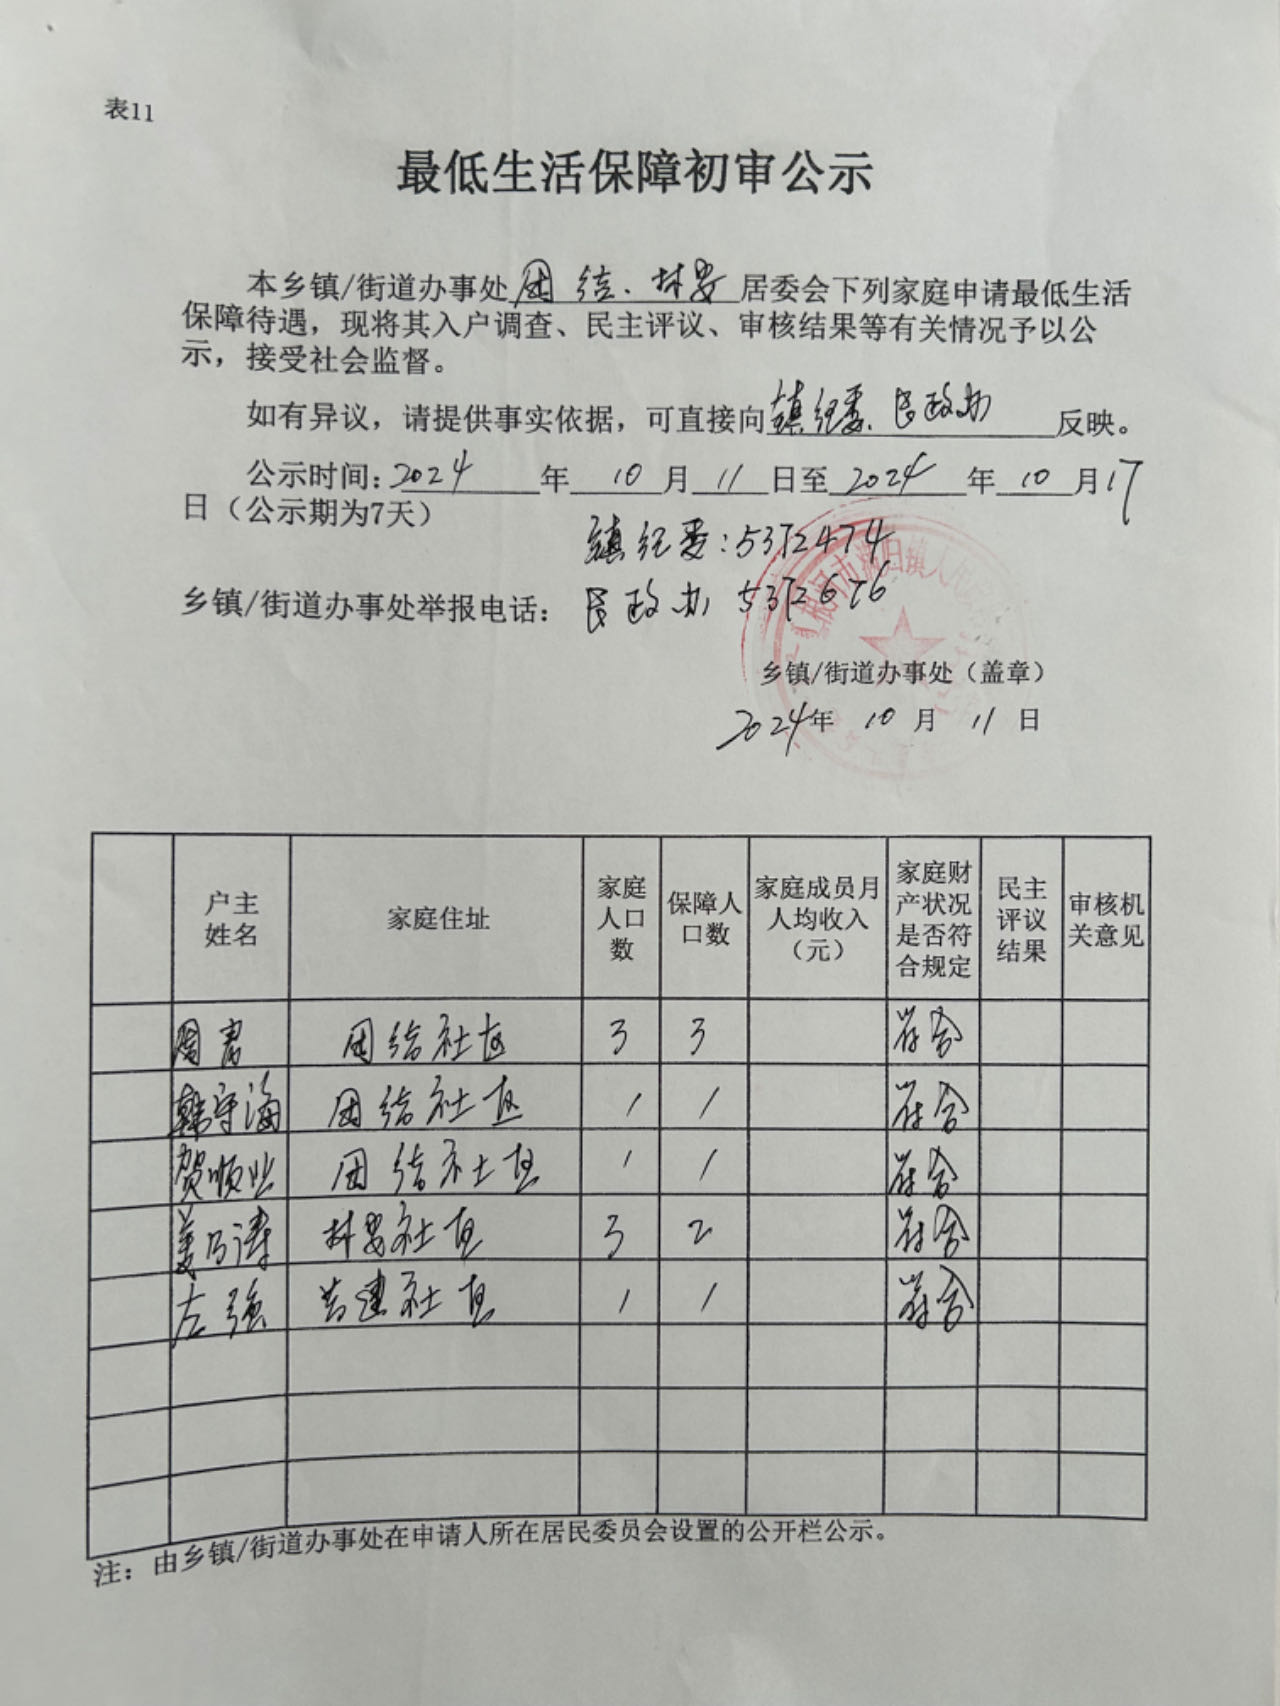 表11
最低生活保障初审公示
本乡镇/街道办事处团结、林安居委会下列家庭申请最低生活
保障待遇，现将其入户调查、民主评议、审核结果等有关情况予以公
示，接受社会监督。
如有异议，请提供事实依据，可直接向镇纪委、民政办反映。
公示时间：2024年10月11日至2024年10月17
日（公示期为7天）
镇纪委：5372474
乡镇/街道办事处举报电话： 民政办 5372676
根河市满归镇人民
乡镇/街道办事处（盖章）
2024年10月11日
户主姓名 家庭住址 家庭人口数 保障人口数 家庭成员月人均收入（元） 家庭财产状况是否符合规定 民主评议结果 审核机关意见
团结社区 3 3 符合
韩守海 团结社区 1 1 符合
贺顺 团结社区 1 1 符合
姜乃涛 林安社区 3 2 符合
左强 社区 1 1 符合
注：由乡镇/街道办事处在申请人所在居民委员会设置的公开栏公示。